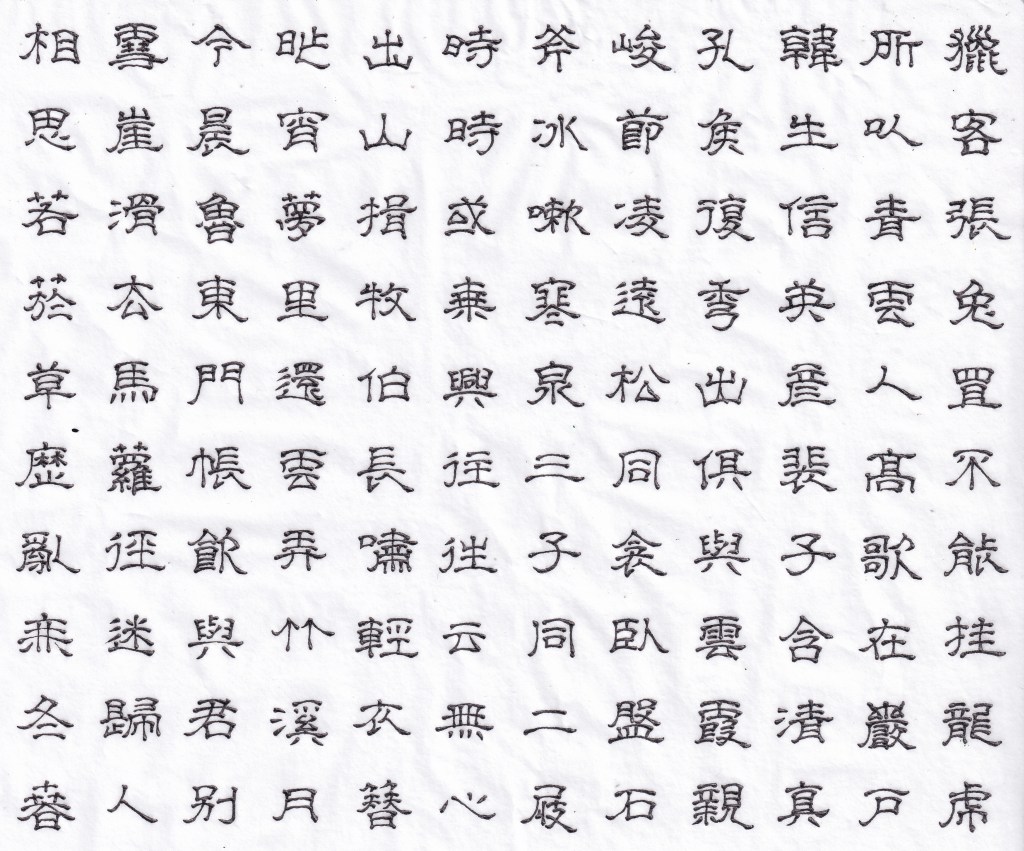 獵客張兔罝不能挂龍虎
所以青雲人高歌在巖戶
韓生信英彥裴子含清真
孔侯復秀出俱與雲霞親
峻節凌遠松同衾臥盤石
斧冰嗽寒泉三子同二屐
時時或乘興往往云無心
出山揖牧伯長嘯輕衣簪
昨宵夢里還雲弄竹溪月
今晨魯東門帳飲與君別
雪崖滑去馬蘿徑迷歸人
相思若菸草歷亂無冬春